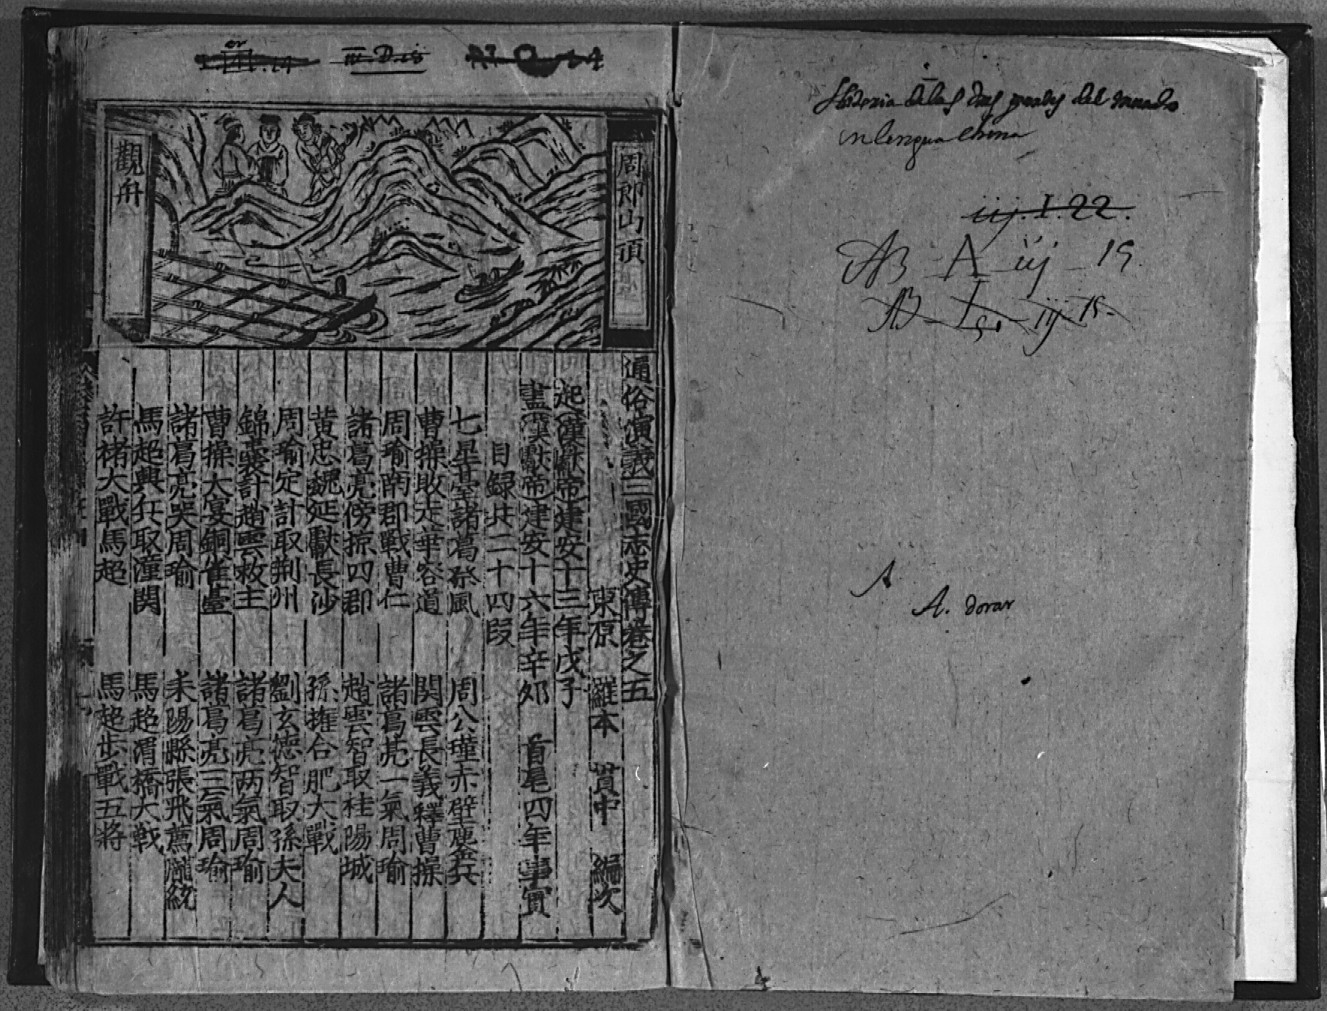 周郎山頂
觀舟
通俗演義三國志史傳卷之五
東原 羅本 貫中 編次
起漢獻帝建安十三年戊子
盡漢獻帝建安十六年辛卯 首尾四年事實
目錄共二十四段
七星臺諸葛祭風 周公瑾赤壁鏖兵
曹操敗走華容道 関雲長義釋曹操
周瑜南郡戰曹仁 諸葛亮一氣周瑜
諸葛亮傍掠四郡 趙雲智取桂陽城
黄忠魏延獻長沙 孫權合肥大戰
周瑜定計取荆州 劉玄德智取孫夫人
錦囊計趙雲救主 諸葛亮两氣周瑜
曹操大宴銅雀臺 諸葛亮三氣周瑜
諸葛亮哭周瑜 耒陽縣張飛薦龐統
馬超興兵取潼関 馬超渭橋大戰
許褚大戰馬超 馬超步戰五將
del mundo
en lengua China
iij.I.22.
A iij 15
A
A. dorar